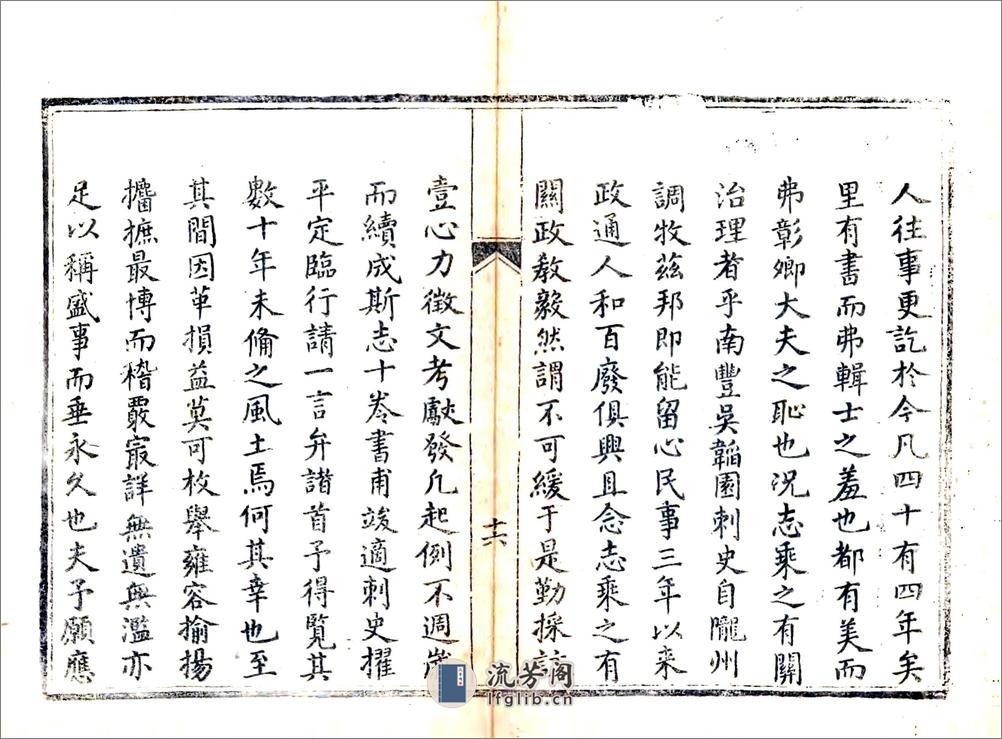 人往事更訖於今凡四十有四年矣
里有書而弗輯士之羞也都有美而
弗彰卿大夫之恥也況志乘之有關
治理者乎南豐吳韜園刺史自隴州
調牧茲邦即能留心民事三年以來
政通人和百廢俱興且念志乘之有
關政教毅然謂不可緩于是勤採訪
壹心力徵文考獻發凡起例不週歲
而續成斯志十卷書甫竣適刺史擢
平定臨行請一言弁諸首予得覽其
數十年未備之風土焉何其幸也至
其間因革損益莫可枚舉雍容揄揚
攟摭最博而稽覈最詳無遺無濫亦
足以稱盛事而垂永久也夫予願應
十六
流芳阁
lfglib.cn